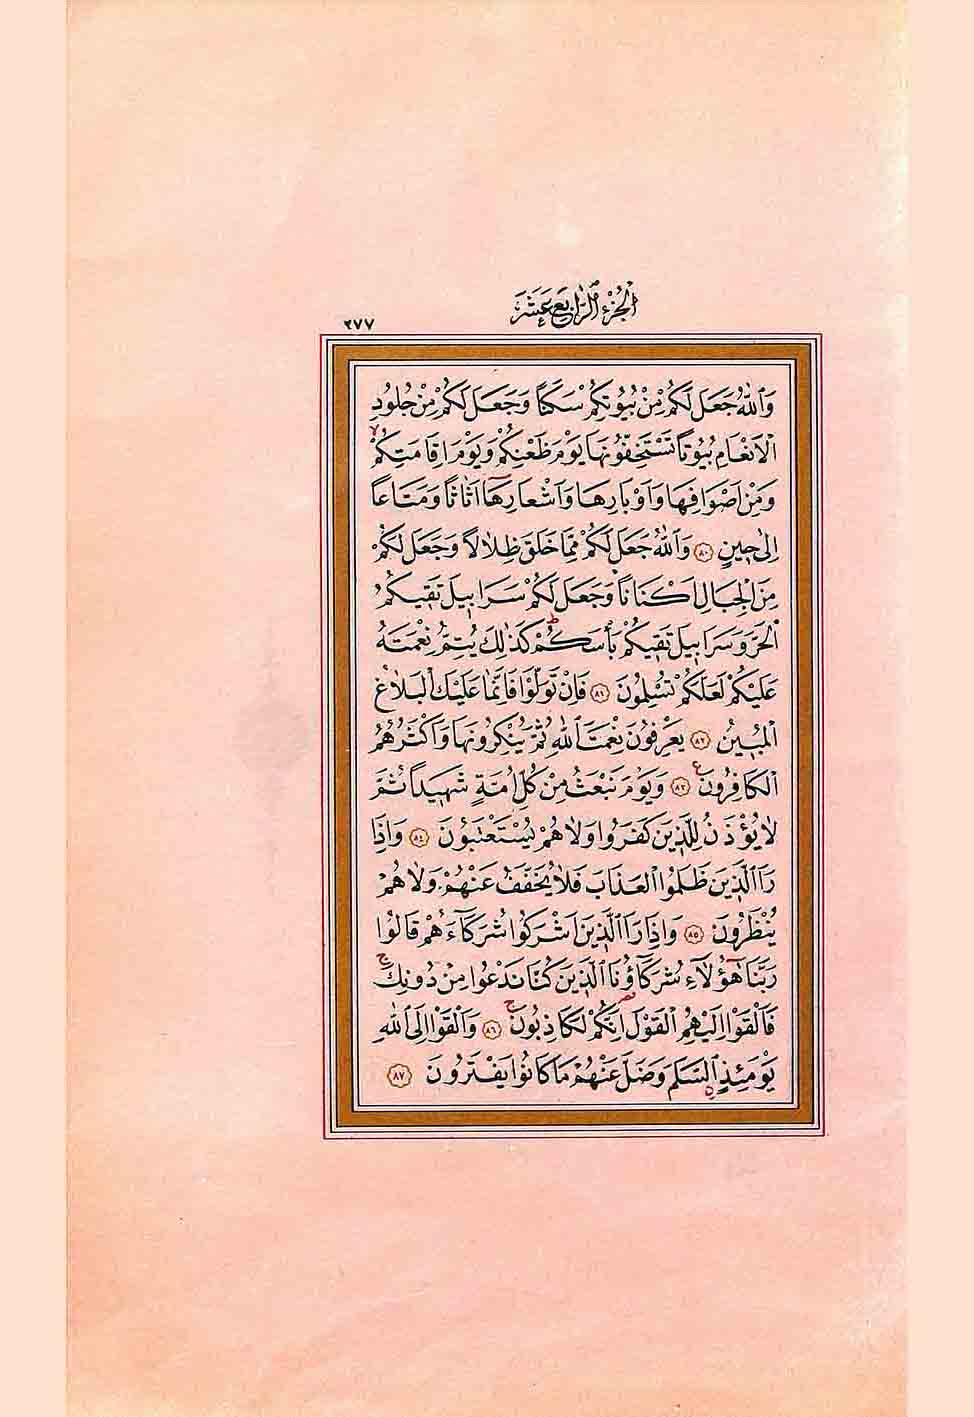 اَلْجُزْءُ الرَّابِعَ عَشَرَ
٢٧٧
وَاللّٰهُ جَعَلَ لَكُمْ مِنْ بُيُوتِكُمْ سَكَنًا وَجَعَلَ لَكُمْ مِنْ جُلُودِ
الْاَنْعَامِ بُيُوتًا تَسْتَخِفُّونَهَا يَوْمَ ظَعْنِكُمْ وَيَوْمَ اِقَامَتِكُمْ ۙ
وَمِنْ اَصْوَافِهَا وَاَوْبَارِهَا وَاَشْعَارِهَٓا اَثَاثًا وَمَتَاعًا
اِلٰى حِينٍ ﴿٨٠﴾ وَاللّٰهُ جَعَلَ لَكُمْ مِمَّا خَلَقَ ظِلَالًا وَجَعَلَ لَكُمْ
مِنَ الْجِبَالِ اَكْنَانًا وَجَعَلَ لَكُمْ سَرَابِيلَ تَقِيكُمُ
الْحَرَّ وَسَرَابِيلَ تَقِيكُمْ بَأْسَكُمْ ۜ كَذٰلِكَ يُتِمُّ نِعْمَتَهُ
عَلَيْكُمْ لَعَلَّكُمْ تُسْلِمُونَ ﴿٨١﴾ فَاِنْ تَوَلَّوْا فَاِنَّمَا عَلَيْكَ الْبَلَاغُ
الْمُبِينُ ﴿٨٢﴾ يَعْرِفُونَ نِعْمَتَ اللّٰهِ ثُمَّ يُنْكِرُونَهَا وَاَكْثَرُهُمُ
الْكَافِرُونَ ۟ ﴿٨٣﴾ وَيَوْمَ نَبْعَثُ مِنْ كُلِّ اُمَّةٍ شَهِيدًا ثُمَّ
لَا يُؤْذَنُ لِلَّذِينَ كَفَرُوا وَلَا هُمْ يُسْتَعْتَبُونَ ﴿٨٤﴾ وَاِذَا
رَاَ الَّذِينَ ظَلَمُوا الْعَذَابَ فَلَا يُخَفَّفُ عَنْهُمْ وَلَا هُمْ
يُنْظَرُونَ ﴿٨٥﴾ وَاِذَا رَاَ الَّذِينَ اَشْرَكُوا شُرَكَٓاءَهُمْ قَالُوا
رَبَّنَا هٰٓؤُ۬لَٓاءِ شُرَكَٓاؤُ۬نَا الَّذِينَ كُنَّا نَدْعُوا مِنْ دُونِكَ ۚ
فَاَلْقَوْا اِلَيْهِمُ الْقَوْلَ اِنَّكُمْ لَكَاذِبُونَ ۚ ﴿٨٦﴾ وَاَلْقَوْا اِلَى اللّٰهِ
يَوْمَئِذٍ السَّلَمَ وَضَلَّ عَنْهُمْ مَا كَانُوا يَفْتَرُونَ ﴿٨٧﴾